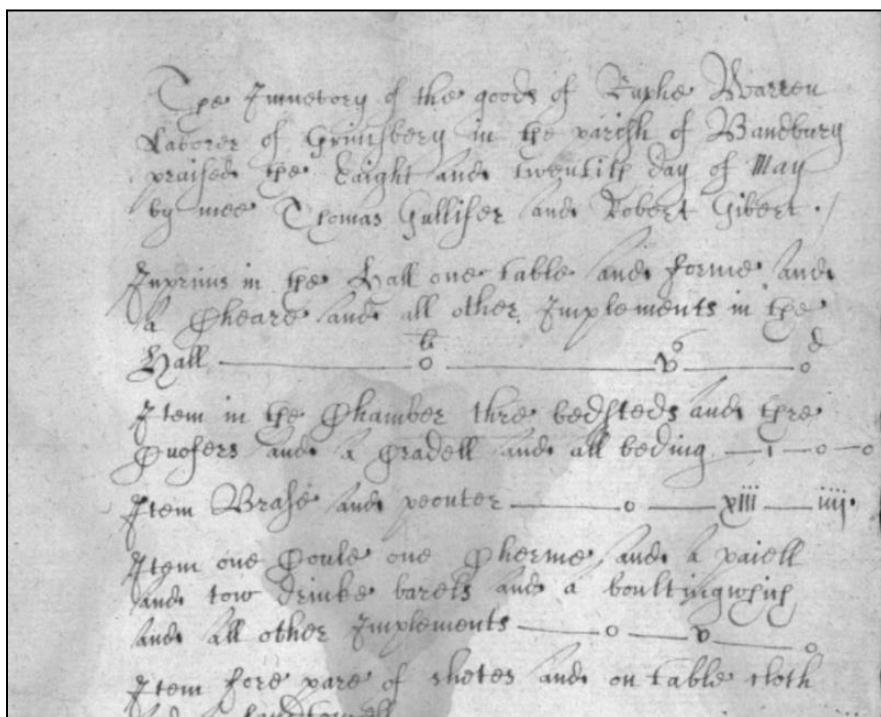 The Inuetory of the goods of Raphe Warren
Laborer of Grimsbery in the parish of Bandbury
praised the Eaight and twentith day of May
by mee Thomas Gulliser and Robert Gibert .
Inprimis in the Hall one table and forme and
a Cheare and all other Implements in the
Hall — li o — s v — d o
Item in the Chamber thre bedsteds and thre
Cuofers and a Cradell and all beding — i — o — o
Item Brase and peouter — o — xiii — iiij.
Item one Coule one Cherme and a paiell
and tow drinke barels and a boultingwhich
and all other Implements — o — v — o
Item fore pare of shetes and on table cloth